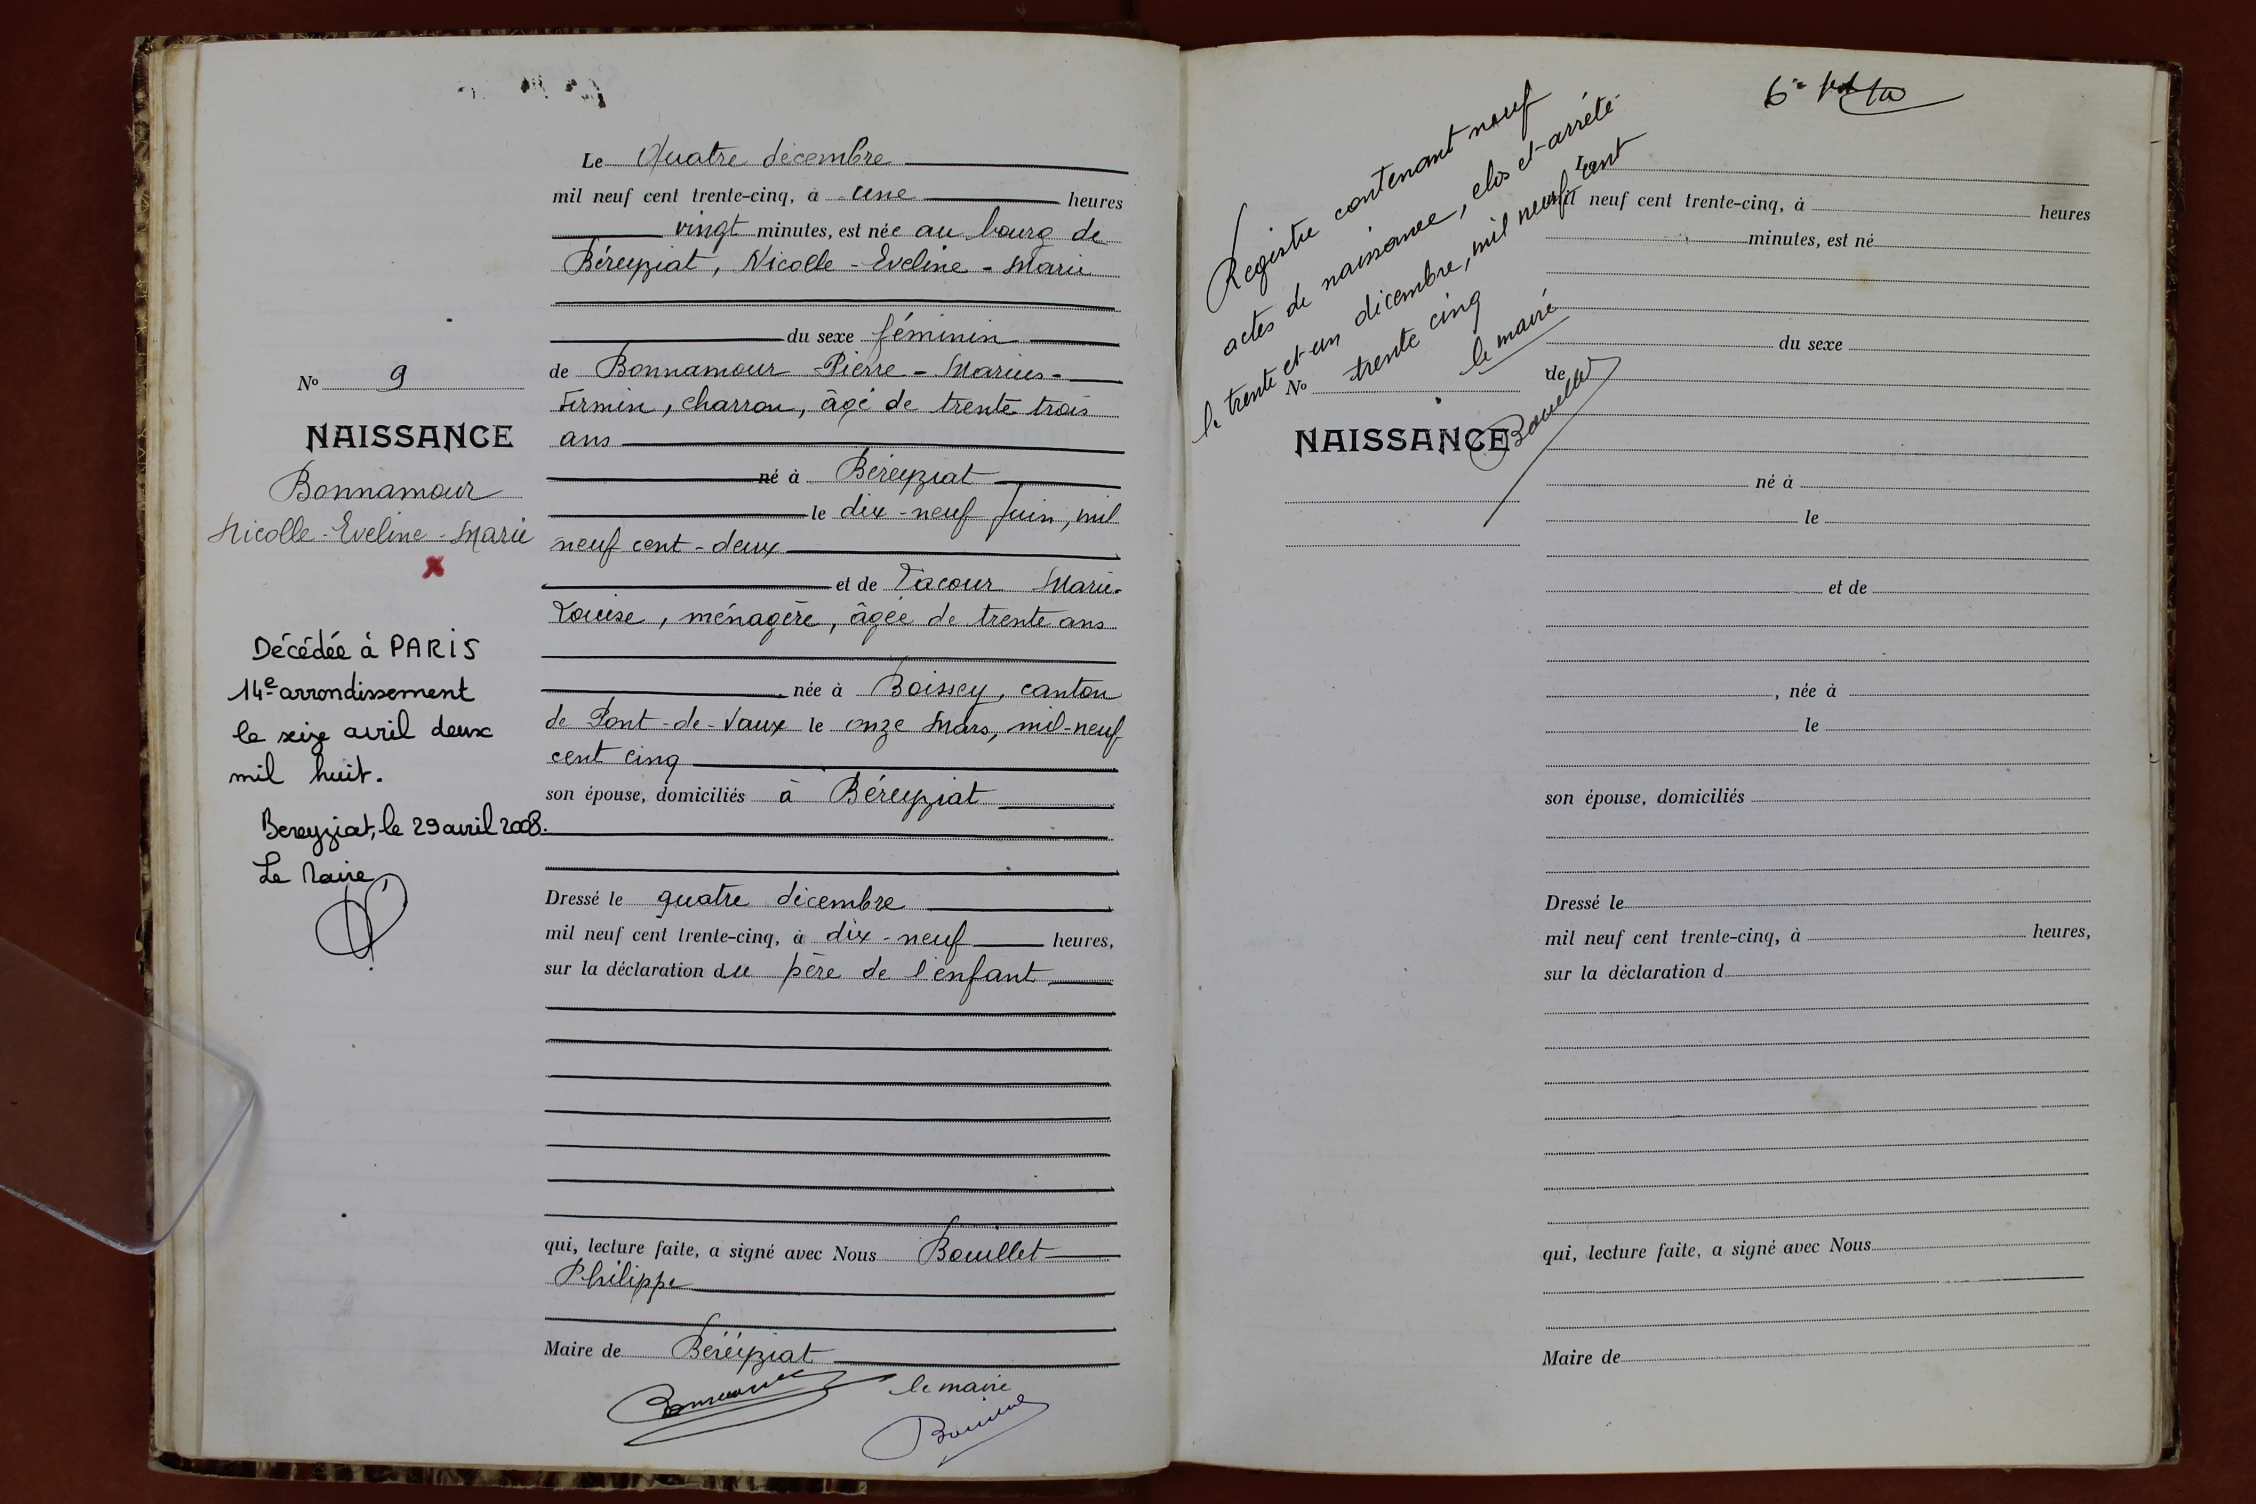 Le Quatre décembre
mil neuf cent trente-cinq, à une heures
vingt minutes, est née au bourg de
Béréyziat, Nicolle - Eveline - Marie
du sexe féminin
de Bonnamour Pierre - Marius -
Firmin, charron, âgé de trente trois
ans
né à Béréyziat
le dix-neuf Juin, mil
neuf cent-deux
et de Lacour Marie-
Louise, ménagère, âgée de trente ans
née à Boissey, canton
de Pont-de-Vaux le onze Mars, mil-neuf
cent cinq
son épouse, domiciliés à Béréyziat
Dressé le quatre décembre
mil neuf cent trente-cinq, à dix-neuf heures,
sur la déclaration du père de l'enfant
qui, lecture faite, a signé avec Nous Bouillet
Philippe
Maire de Béréyziat
le maire
No 9
NAISSANCE
Bonnamour
Nicolle - Eveline - Marie
Décédée à PARIS
14e arrondissement
le seize avril deux
mil huit.
Bereyziat, le 29 avril 2008.
Le Maire
Registre contenant neuf
actes de naissance, clos et arrêté
le trente et un décembre, mil neuf cent
trente cinq
le maire
Bouillet
No
NAISSANCE
Le
mil neuf cent trente-cinq, à heures
minutes, est né
du sexe
de
né à
le
et de
, née à
le
son épouse, domiciliés
Dressé le
mil neuf cent trente-cinq, à heures,
sur la déclaration d
qui, lecture faite, a signé avec Nous
Maire de